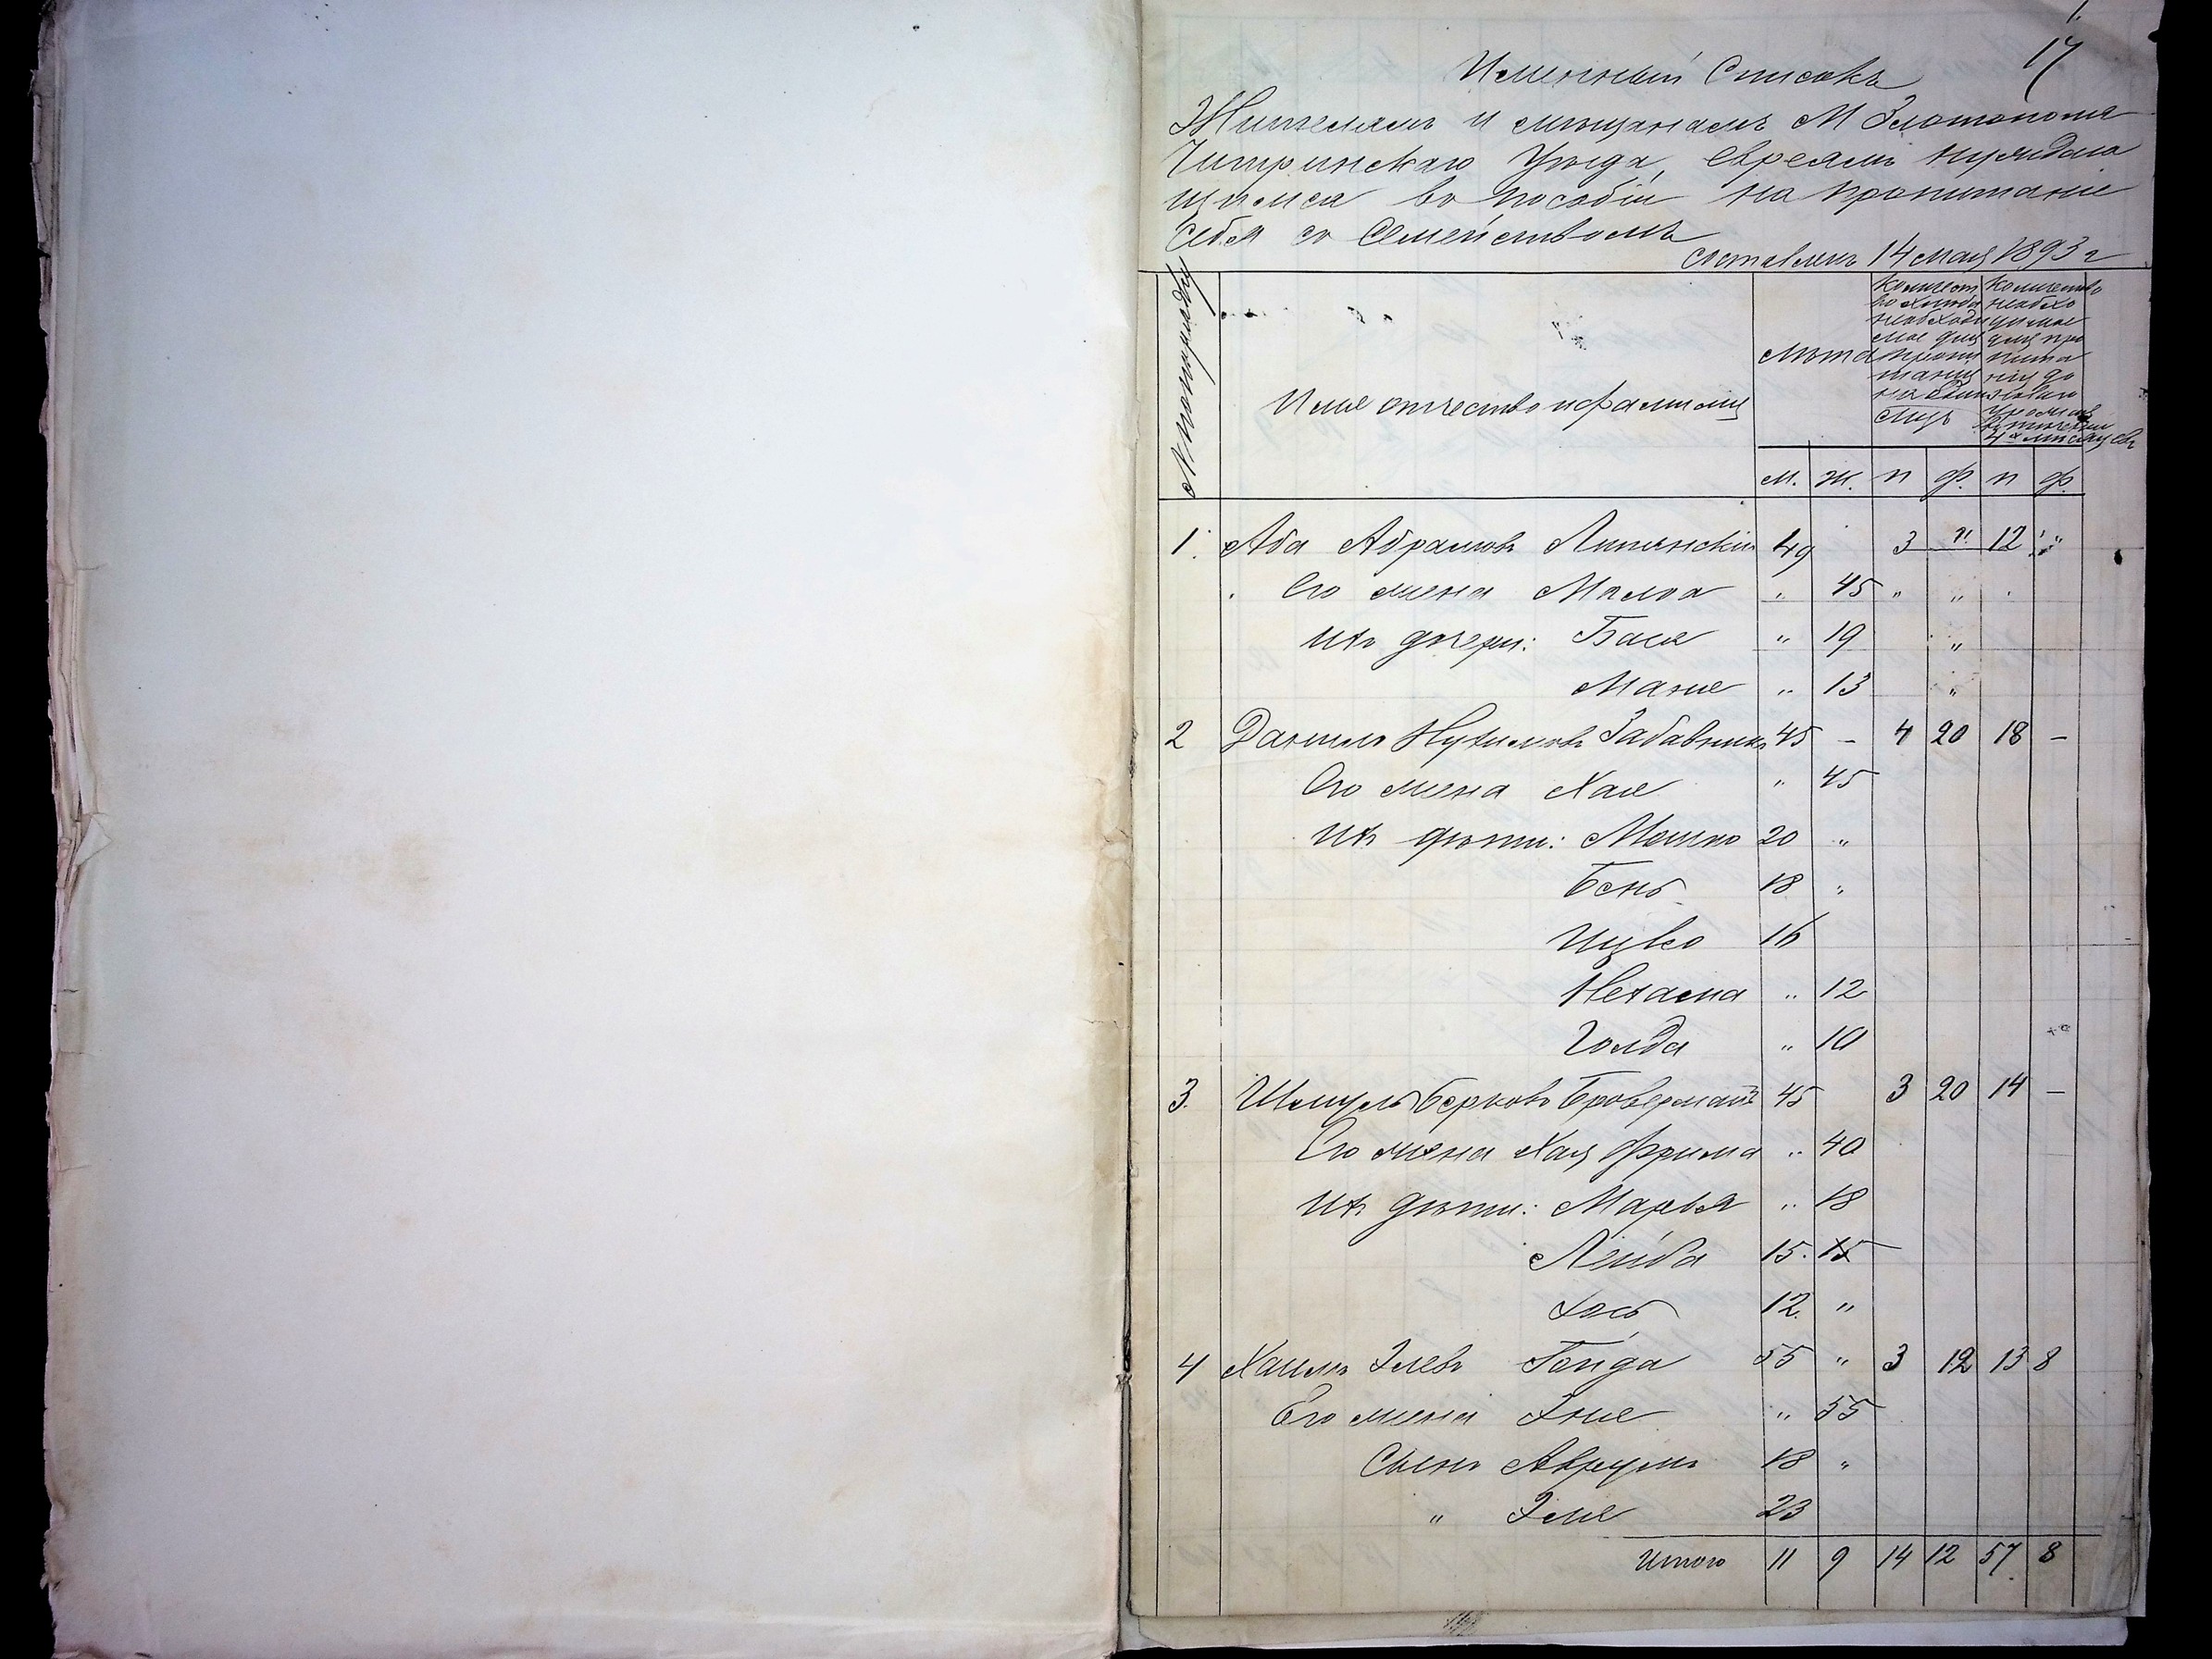 1.
17
Именный Списокъ
Жителямъ и мѣщанамъ М Златополя
Чигринскаго Уѣзда, евреямъ нуждаю
щимся въ пособіи на пропитаніе
себя съ Семействомъ
составленъ 14 мая 1893 г
№ по порядку
Имя отчество и фамилія
Лѣта
Количест
во хлѣба
необходи
мое для
пропи
танія
на одинъ
мѣсяцъ
Количество
необхо
димое
для про
пита
нія до
новаго
урожая
въ теченіи
4х мѣсяцевъ
м. ж. п ф. п ф.
1. Аба Абрамовъ Липянскій 49 3 " 12 "
Его жена Малка " 45 " "
ихъ дочери: Бася " 19 "
Маня " 13 "
2 Даніилъ Нухимовъ Забавникъ 45 - 4 20 18 -
Его жена Хая " 45
ихъ дѣти: Мошко 20 "
Бень 18 "
Ицко 16
Нехама " 12
Голда " 10
3. Шмуль Берковъ Броверманъ 45 3 20 14 -
Его жена Хая Фрима " 40
ихъ дѣти: Марья " 18
Лейба 15. 15
Іось 12. "
4 Хаимъ Элевъ Гойда 55 " 3 12 13 8
Его жена Эня " 55
Сынъ Аврумъ 18 "
" Эля 23
Итого 11 9 14 12 57 8